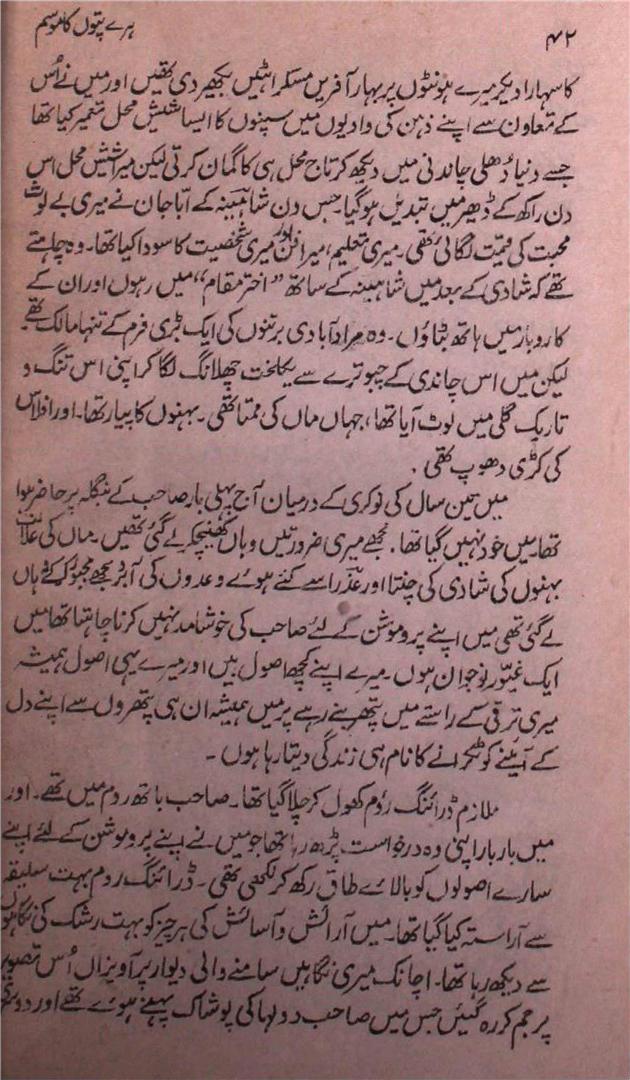 ۴۲
ہرے پتوں کا موسم
کا سہارا دیکر میرے ہونٹوں پر بہار آفریں مسکراہٹیں بکھیر دی تھیں اور میں نے اُس
کے تعاون سے اپنے ذہن کی وادیوں میں سپنوں کا ایسا شیش محل تعمیر کیا تھا
جسے دنیا دُھلی چاندنی میں دیکھ کر تاج محل ہی کا گمان کرتی لیکن میرا شیش محل اس
دن راکھ کے ڈھیر میں تبدیل ہوگیا جس دن شاہینہ کے ابا جان نے میری بے لوث
محبت کی قیمت لگائی تھی۔ میری تعلیم، میرا فن اور میری شخصیت کا سودا کیا تھا۔ وہ چاہتے
تھے کہ شادی کے بعد میں شاہینہ کے ساتھ "اختر مقام" میں رہوں اور ان کے
کاروبار میں ہاتھ بٹاؤں۔ وہ مرادآبادی برتنوں کی ایک بڑی فرم کے تنہا مالک تھے
لیکن میں اس چاندی کے چبوترے سے یکلخت چھلانگ لگا کر اپنی اس تنگ و
تاریک گلی میں لوٹ آیا تھا، جہاں ماں کی ممتا تھی۔ بہنوں کا پیار تھا۔ اور افلاس
کی کڑی دھوپ تھی۔
میں تین سال کی نوکری کے درمیان آج پہلی بار صاحب کے بنگلہ پر حاضر ہوا
تھا میں خود نہیں گیا تھا۔ مجھے میری ضرورتیں وہاں کھینچ کر لے گئی تھیں۔ ماں کی علالت
بہنوں کی شادی کی چنتا اور عذرا سے کئے ہوئے وعدوں کی آبرو مجھے مجبور کر کے وہاں
لے گئی تھی میں اپنے پروموشن کے لئے صاحب کی خوشامد نہیں کرنا چاہتا تھا میں
ایک غیّور نوجوان ہوں۔ میرے اپنے کچھ اصول ہیں اور میرے یہی اصول ہمیشہ
میری ترقی کے راستے میں پتھر بنے رہے پر میں ہمیشہ ان ہی پتھروں سے اپنے دل
کے آئینے کو ٹکرانے کا نام ہی زندگی دیتا رہا ہوں۔
ملازم ڈرائنگ روم کھول کر چلا گیا تھا۔ صاحب باتھ روم میں تھے۔ اور
میں بار بار اپنی وہ درخواست پڑھ رہا تھا جو میں نے اپنے پروموشن کے لئے اپنے
سارے اصولوں کو بالائے طاق رکھ کر لکھی تھی۔ ڈرائنگ روم بہت سلیقہ
سے آراستہ کیا گیا تھا۔ میں آرائش و آسائش کی ہر چیز کو بہت رشک کی نگاہوں
سے دیکھ رہا تھا۔ اچانک میری نگاہیں سامنے والی دیوار پر آویزاں اُس تصویر
پر جم کر رہ گئیں جس میں صاحب دولہا کی پوشاک پہنے ہوئے تھے اور دوسری